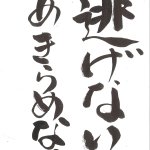 逃げない
めきらめな